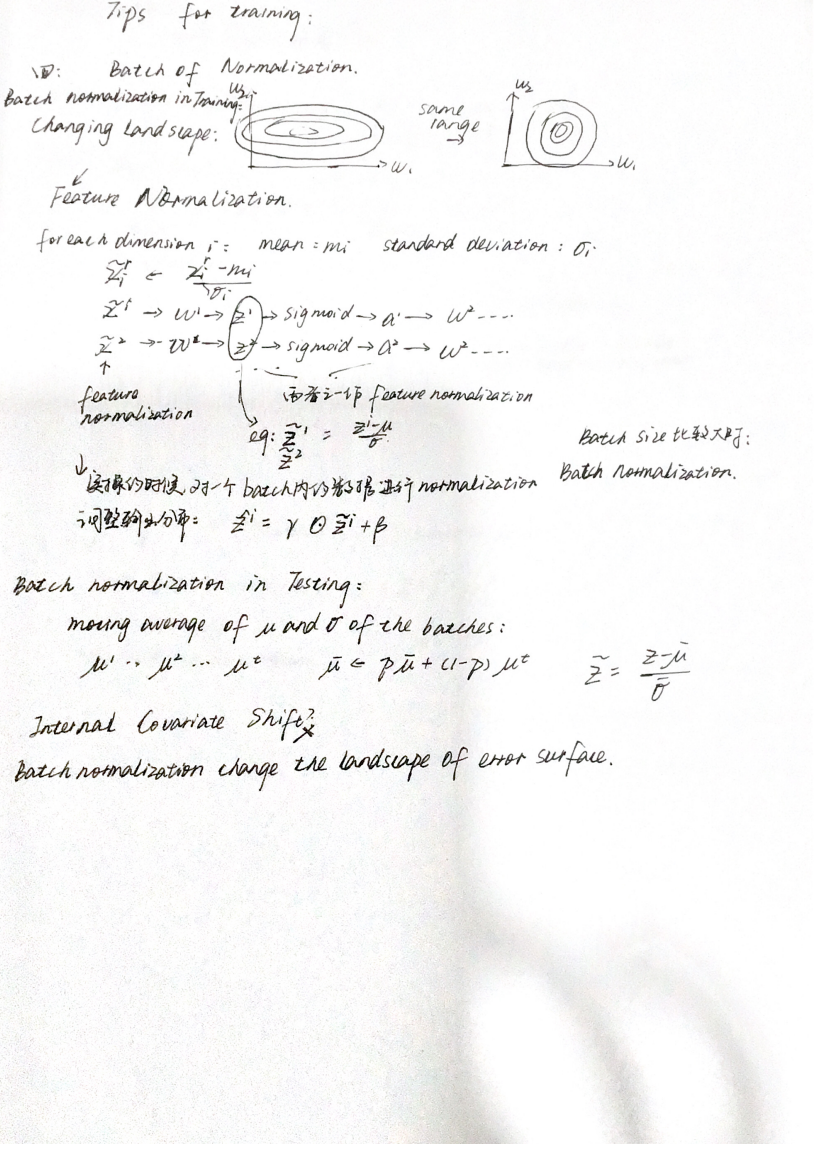 Tips for training:
四: Batch of Normalization.
Batch normalization in Training:
Changing Landscape:
w₂
w₁
same range →
w₂
w₁
↙
Feature Normalization.
for each dimension i: mean = mi standard deviation: σi
x̃ᵢʳ ← (xᵢʳ - mi) / σi
x̃¹ → w¹ → z¹ → sigmoid → a¹ → w² ----
x̃² → w¹ → z² → sigmoid → a² → w² ----
↑
feature normalization
两者之一作 feature normalization
eg: z̃¹ = (z¹-μ) / σ
z̃²
Batch size 比较大时:
Batch normalization.
↓ 实操的时候, 对一个 batch 内的数据进行 normalization
调整输出分布: ẑⁱ = γ ⊙ z̃ⁱ + β
Batch normalization in Testing:
moving average of μ and σ of the batches:
μ¹ ·· μ² ··· μᵗ μ̄ ← pμ̄ + (1-p) μᵗ z̃ = (z-μ̄) / σ̄
Internal Covariate Shift? ×
Batch normalization change the landscape of error surface.